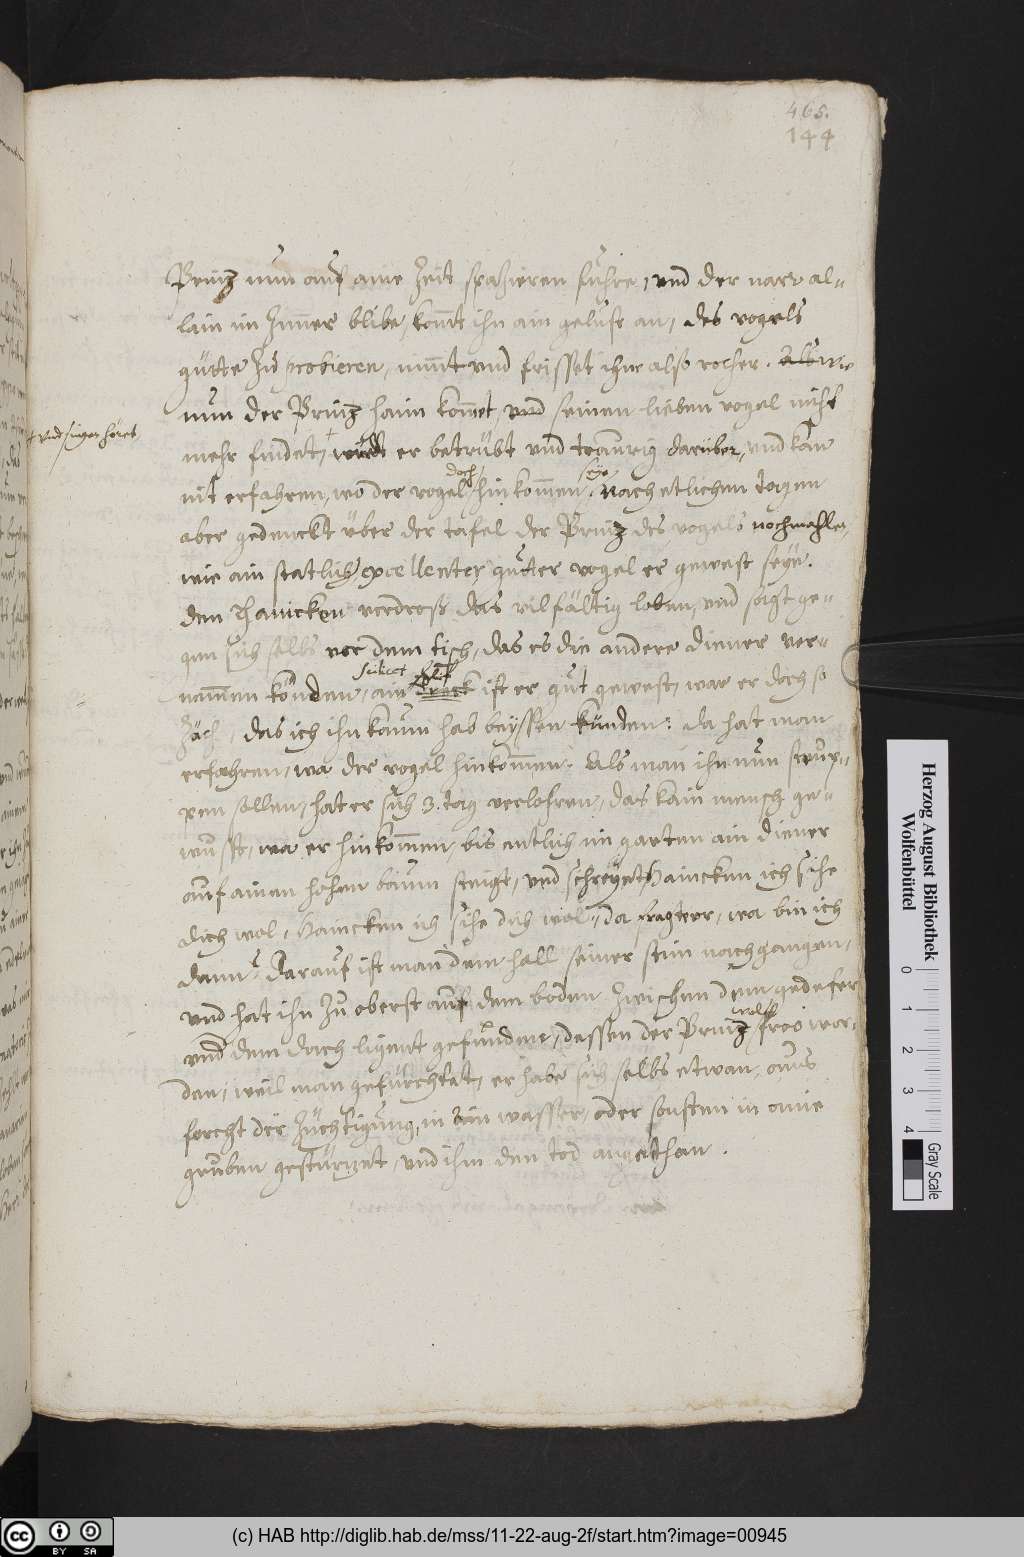 465.
144
Printz nun auf aine Zeit spatzieren fuhre, und der narr al-
lain im Zimmer blibe, komt ihn ain gelust an, des vogels
gütte zu probieren, nimt und frisset ihne also rocher.
nun der Printz haim komet, und seinen lieben vogel nicht
+ und singen höret
mehr findet, + würdt er betrübt und traurig darüber, und kan
doch seye
nit erfahren, wo der vogel hinkomen. Nach etlichen tagen
aber gedenckt über der tafel der Printz des vogels nochmahlen,
wie ain statlich excellenter gutter vogel er gewest seye.
den Hanicken verdross das vilfältig loben, und sagt ge-
gen sich selbs vor dem tisch, das es die andere diener ver-
scilicet
nemmen könden, ain dreck ist er gut gewest, war er doch so
zäch, das ich ihn kaum hab beyssen künden: da hat man
erfahren, wa der vogel hinkomen. Als man ihn nun
sollen, hat er sich 3. tag verlohren, das kain mensch ge-
wusst, wa er hinkomen bis entlich im garten ain diener
auf ainen hohen baum steigt, und schreyet Haincken ich sihe
dich wol, Haincken ich sihe dich wol, da fragt er, wa bin ich
dann? Darauf ist man dem hall seiner stim nachgangen,
und hat ihn zu oberst auf dem boden zwischen dem gedefer
und dem dach ligent gefunden, dessen der Printz froo wor-
den, weil man gefürchtet, er habe sich selbs etwan aus
forcht der züchtigung, in ain wasser, oder sonsten in aine
gruben gestürtzet, und ihm den tod angethan.
Herzog August Bibliothek
Wolfenbüttel
0 1 2 3 4
Gray Scale
cc BY SA
(c) HAB http://diglib.hab.de/mss/11-22-aug-2f/start.htm?image=00945